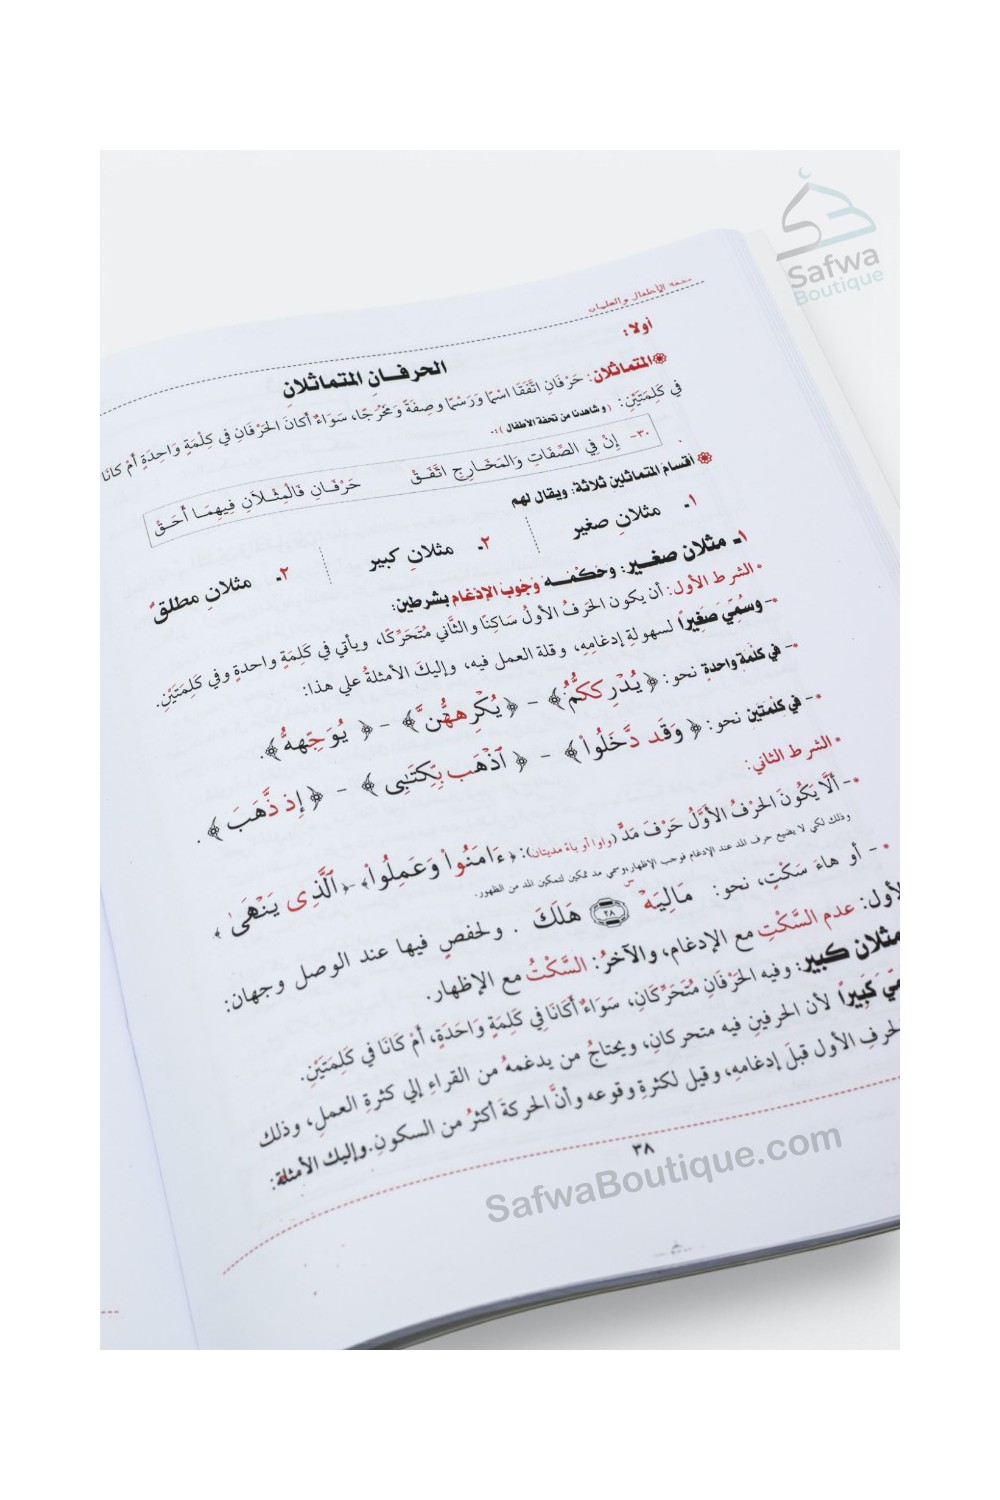 Safwa
Boutique
تحفة الأطفال والغلمان
أولا:
الحرفانِ المتماثلانِ
المتماثلان: حَرْفَانِ اتَّفَقَا اسْمًا وَرَسْمًا وصِفَةً وَمَخْرَجًا، سَوَاءٌ أكَانَ الحَرْفَانِ فِي كَلِمَةٍ وَاحِدَةٍ أَمْ كَانَا
فِي كَلِمَتَيْنِ: (وشاهدنا من تحفة الأطفال):
٣٠- إنْ فِي الصِّفَاتِ وَالمَخَارِجِ اتَّفَقْ حَرْفَانِ فَالْمِثْلَانِ فِيهِمَا أَحَقّْ
أقسام المتماثلين ثلاثة: ويقال لهم
١- مثلانِ صغير ٢- مثلانِ كبير ٢- مثلانِ مطلقٌ
١- مثلان صغير: وحكمه وجوب الإدغام بشرطين:
* الشرط الأول: أن يكون الحَرفُ الأولُ سَاكِنًا والثَّاني مُتَحَرِّكًا، ويأتي في كَلِمَةٍ واحدةٍ وفي كَلِمَتَيْنِ.
*- وسُمِّيَ صَغِيراً لسهولةِ إدغامِهِ، وقلة العمل فيه، وإليكَ الأمثلةُ علي هذا:
*- في كَلِمَةٍ واحدةٍ نحو: ﴿ يُدْرِككُّمُ ﴾ - ﴿ يُكْرِههُّنَّ ﴾ - ﴿ يُوَجِّههُّ ﴾.
*- في كَلِمَتَينِ نحو: ﴿ وَقَد دَّخَلُوا۟ ﴾ - ﴿ ٱذْهَب بِّكِتَٰبِى ﴾ - ﴿ إِذ ذَّهَبَ ﴾.
* الشرط الثاني:
*- ألَّا يَكُونَ الحَرْفُ الأَوَّلُ حَرْفَ مَدٍّ (واوا أو ياءً مديتان): ﴿ ءَامَنُوا۟ وَعَمِلُوا۟ ﴾ - ﴿ ٱلَّذِى يَنْهَىٰ ﴾
وذلك لكي لا يضيع حرف المد عند الإدغام فوجب الإظهار، وسمي مد تمكين لتمكين المد من الظهور.
*- أو هاءَ سَكْتٍ، نحو: مَالِيَهْۜ ٢٨ هَلَكَ . ولحفصٍ فيها عند الوصل وجهان:
لأول: عدم السَّكْتِ مع الإدغام، والآخرُ: السَّكْتُ مع الإظهار.
مثلان كبير: وفيه الحَرْفَانِ مُتَحَرِّكَانِ، سَوَاءٌ أكَانَا فِي كَلِمَةٍ وَاحَدَةٍ، أَمْ كَانَا فِي كَلِمَتَيْنِ.
مِّيَ كَبِيراً لأن الحرفينِ فيه متحركانِ، ويحتاجُ من يدغمهُ من القراءِ إلي كثرةِ العملِ، وذلك
لحرفِ الأول قبلَ إدغامهِ، وقيل لكثرةِ وقوعه وأنَّ الحركةَ أكثرُ من السكونِ. وإليك الأمثلة:
٣٨
SafwaBoutique.com